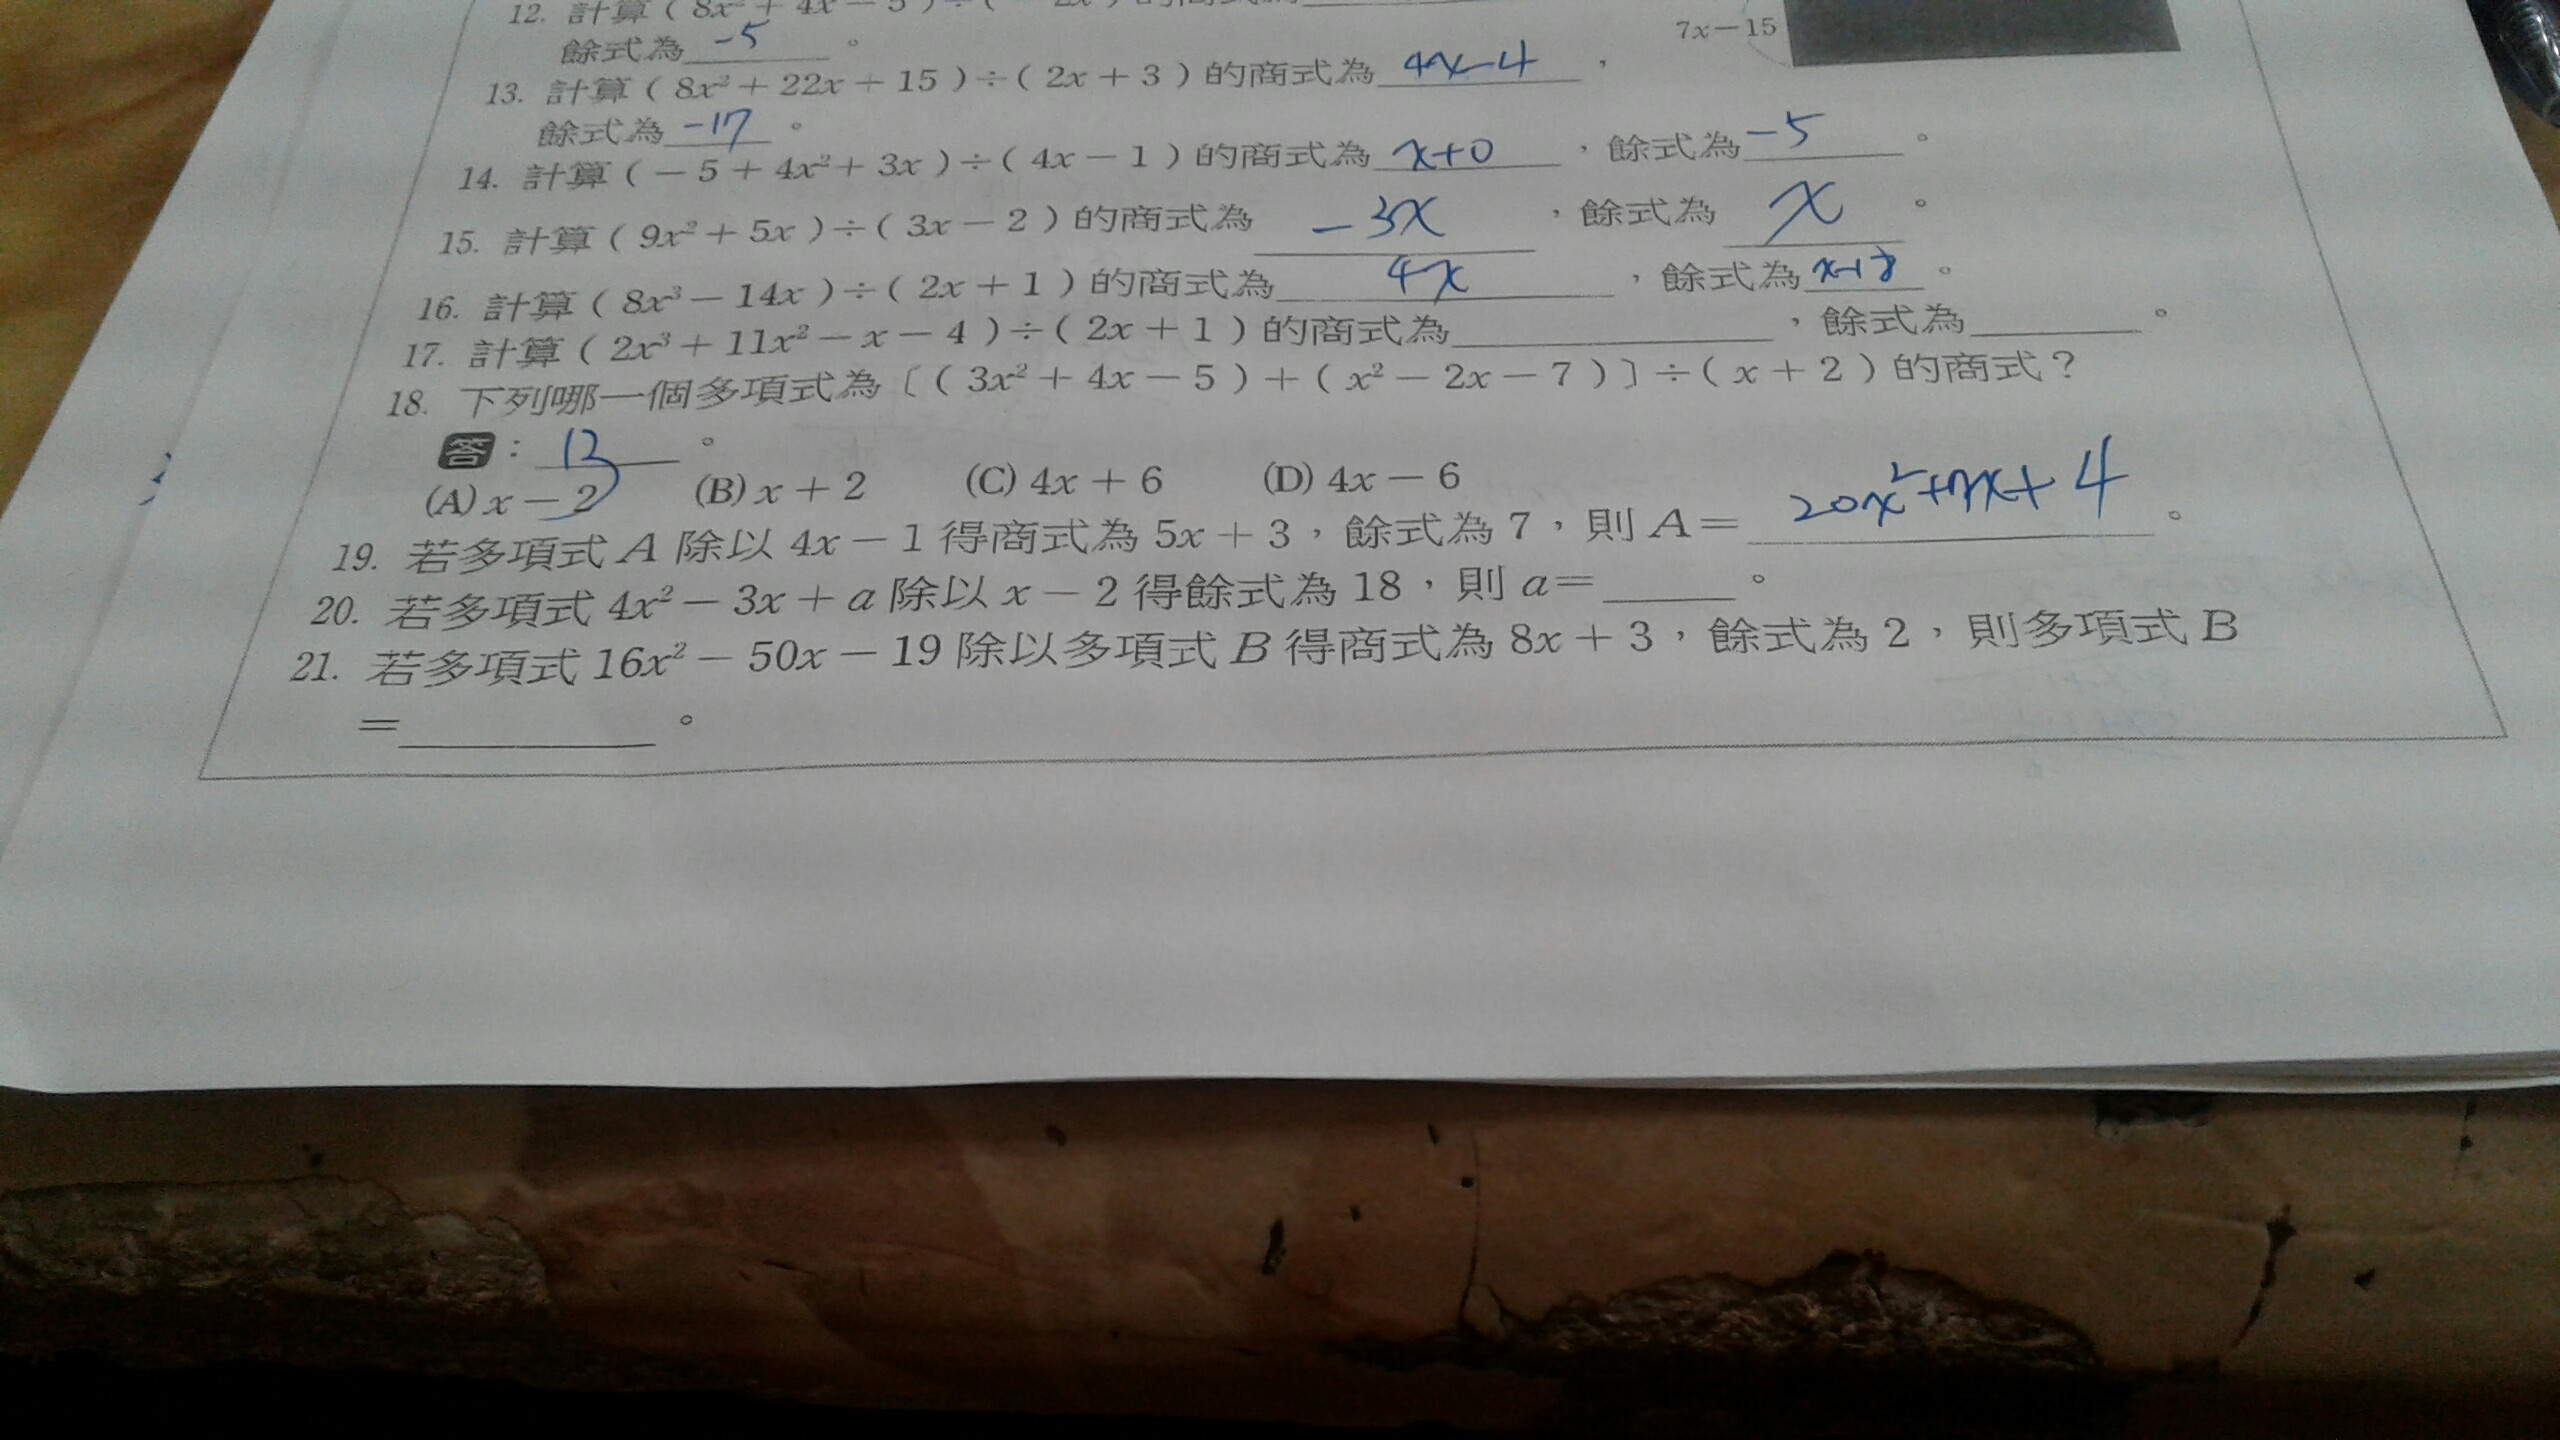 12. 計算（8x²＋4x－5）÷（－2x）的商式為
7x－15
餘式為 -5 。
13. 計算（8x²＋22x＋15）÷（2x＋3）的商式為 4x-4 ，
餘式為 -17 。
14. 計算（－5＋4x²＋3x）÷（4x－1）的商式為 x+0 ，餘式為 -5 。
15. 計算（9x²＋5x）÷（3x－2）的商式為 -3x ，餘式為 x 。
16. 計算（8x³－14x）÷（2x＋1）的商式為 4x ，餘式為 。
17. 計算（2x³＋11x²－x－4）÷（2x＋1）的商式為 ，餘式為 。
18. 下列哪一個多項式為〔（3x²＋4x－5）＋（x²－2x－7）〕÷（x＋2）的商式？
答： 。
(A) x－2 (B) x＋2 (C) 4x＋6 (D) 4x－6
19. 若多項式 A 除以 4x－1 得商式為 5x＋3，餘式為 7，則 A＝ 20x²+7x+4 。
20. 若多項式 4x²－3x＋a 除以 x－2 得餘式為 18，則 a＝ 。
21. 若多項式 16x²－50x－19 除以多項式 B 得商式為 8x＋3，餘式為 2，則多項式 B
＝ 。